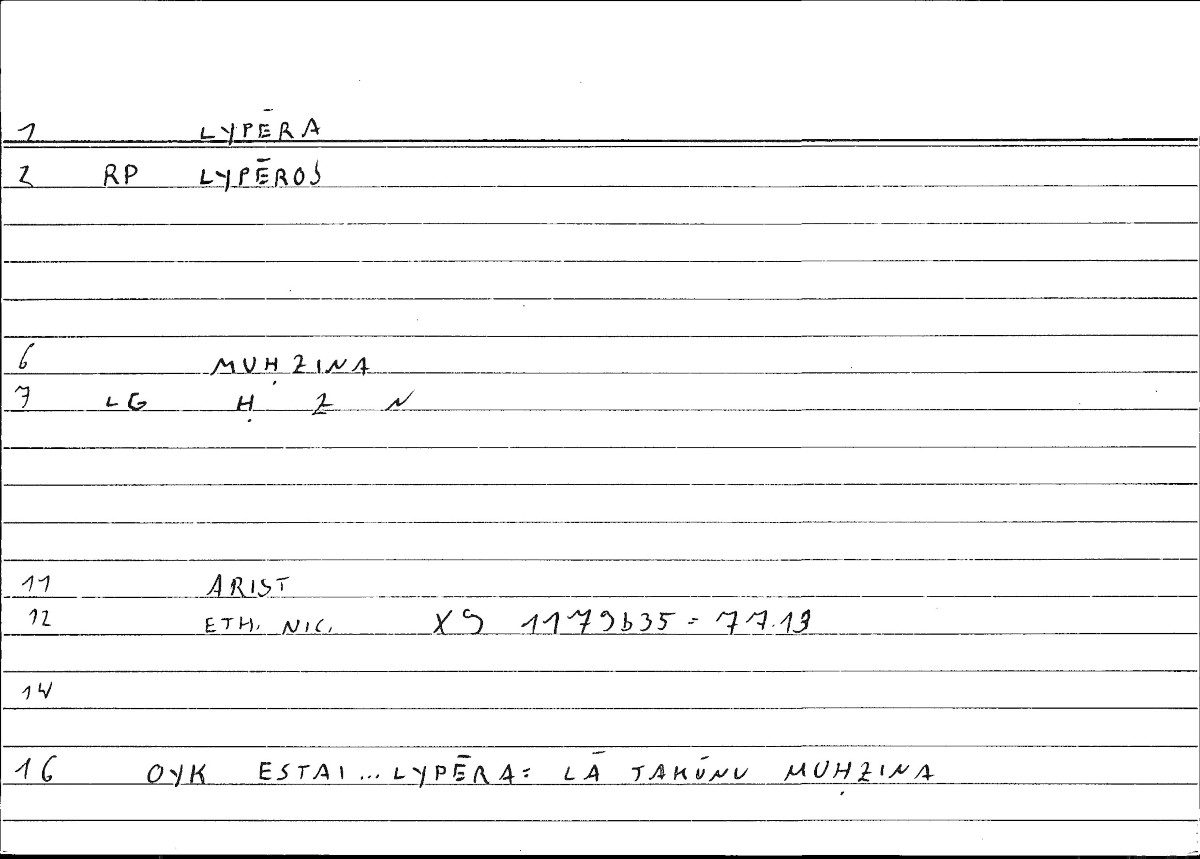 1 LYPĒRA
2 RP LYPĒROS
6 MUḤZINA
7 LG Ḥ Z N
11 ARIST
12 ETH. NIC. X9 1179b35 = 77.19
14
16 OYK ESTAI... LYPĒRA: LĀ TAKŪNU MUḤZINA